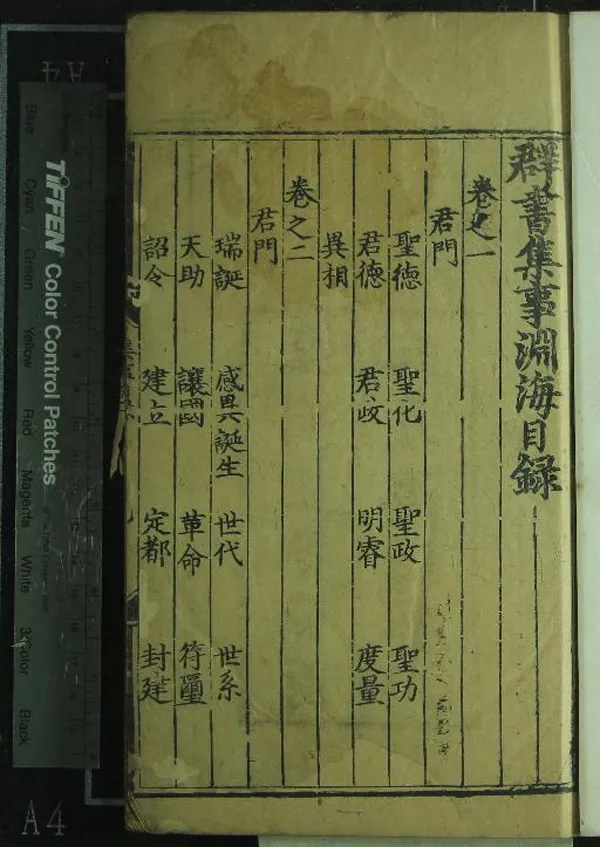 群書集事淵海目録
卷之一
君門
聖德 聖化 聖政 聖功
君德 君政 明睿 度量
異相
卷之二
君門
瑞誕 感異誕生 世代 世系
天助 讓國 革命 符璽
詔令 建立 定都 封建
TIFFEN Color Control Patches
Blue Cyan Green Yellow Red Magenta White 3/Color Black
A4
A4